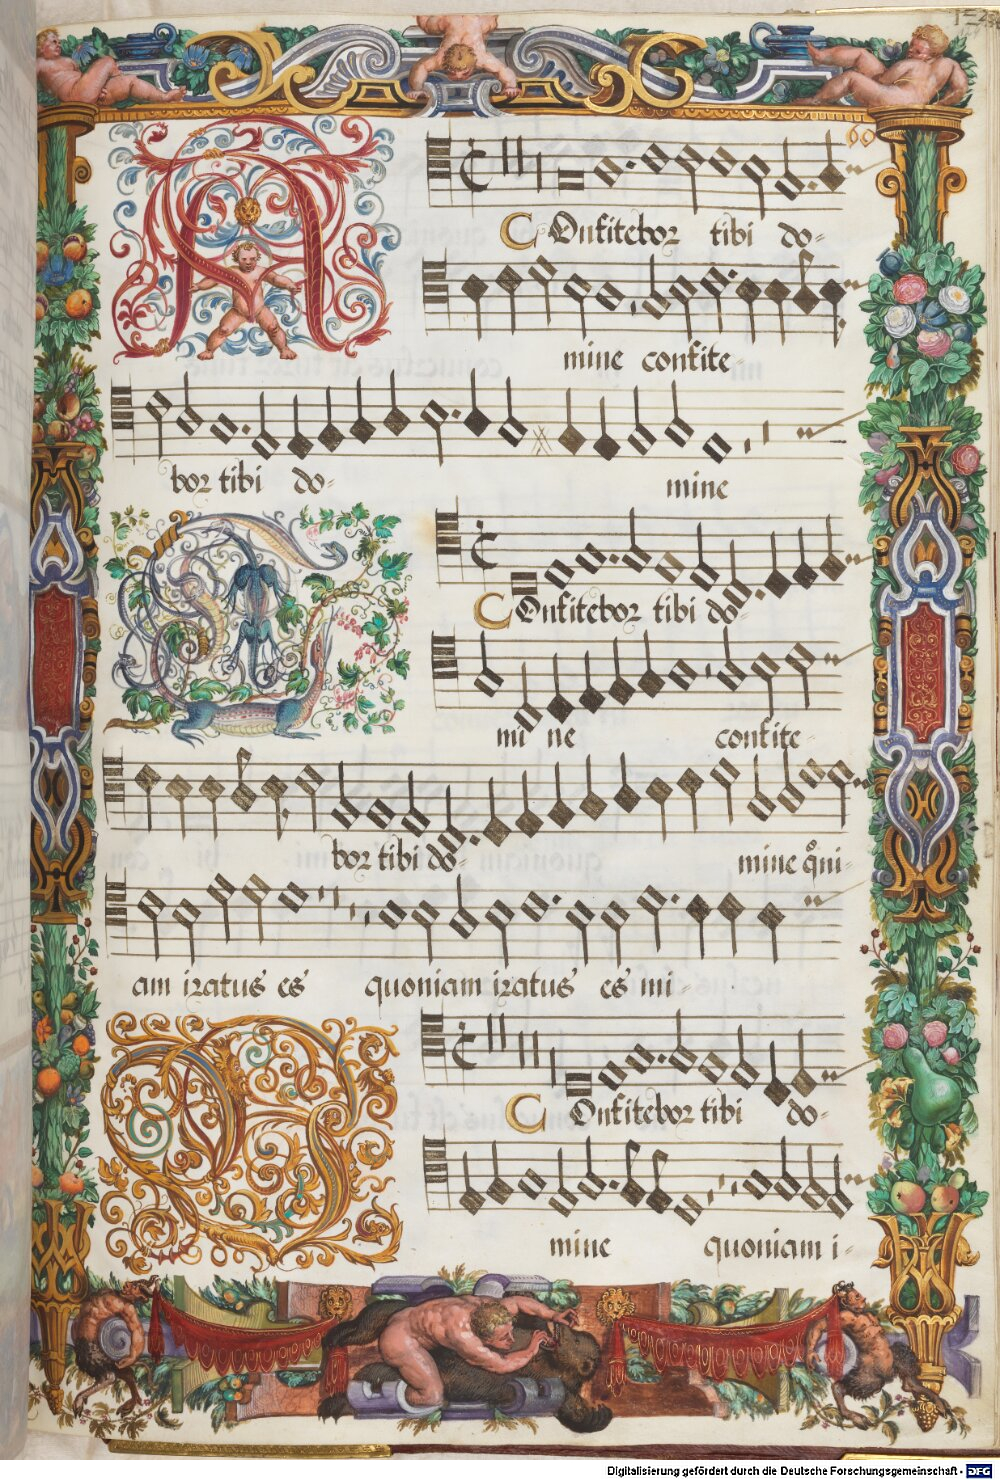 60
COnfitebor tibi do-
mine confite-
bor tibi do- mine
COnfitebor tibi do-
mi ne confite-
bor tibi do- mine qͦni-
am iratus es quoniam iratus es mi-
COnfitebor tibi do-
mine quoniam i-
Digitalisierung gefördert durch die Deutsche Forschungsgemeinschaft - DFG